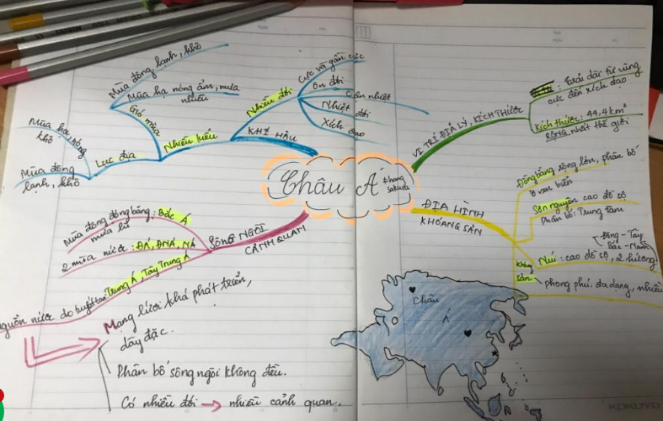 Châu Á
KHÍ HẬU
Nhiều đới
Cực và gần cực
Ôn đới
Cận nhiệt
Nhiệt đới
Xích đạo
Nhiều kiểu
Gió mùa
Mùa đông lạnh, khô
Mùa hạ nóng ẩm, mưa
nhiều
Lục địa
Mùa hạ nóng
khô
Mùa đông
lạnh, khô
VỊ TRÍ ĐỊA LÝ, KÍCH THƯỚC
Trải dài từ vùng
cực đến xích đạo
Kích thước: 44,4 km²
RỘNG nhất thế giới
ĐỊA HÌNH
KHOÁNG SẢN
Đồng bằng rộng lớn, phân bố
ở ven biển
Sơn nguyên cao đồ sộ
Phân bố: Trung tâm
Núi: cao đồ sộ, 2 hướng
Đông - Tây
Bắc - Nam
Khoáng
sản
phong phú, đa dạng, nhiều
SÔNG NGÒI
CẢNH QUAN
Mùa đông đóng băng: Bắc Á
mùa lũ
2 mùa nước: ĐÁ, ĐNÁ, NÁ
nguồn nước do tuyết tan Trung Á, Tây Trung Á
Mạng lưới khá phát triển,
dày đặc.
Phân bố sông ngòi không đều.
Có nhiều đới → nhiều cảnh quan.
Châu
Á